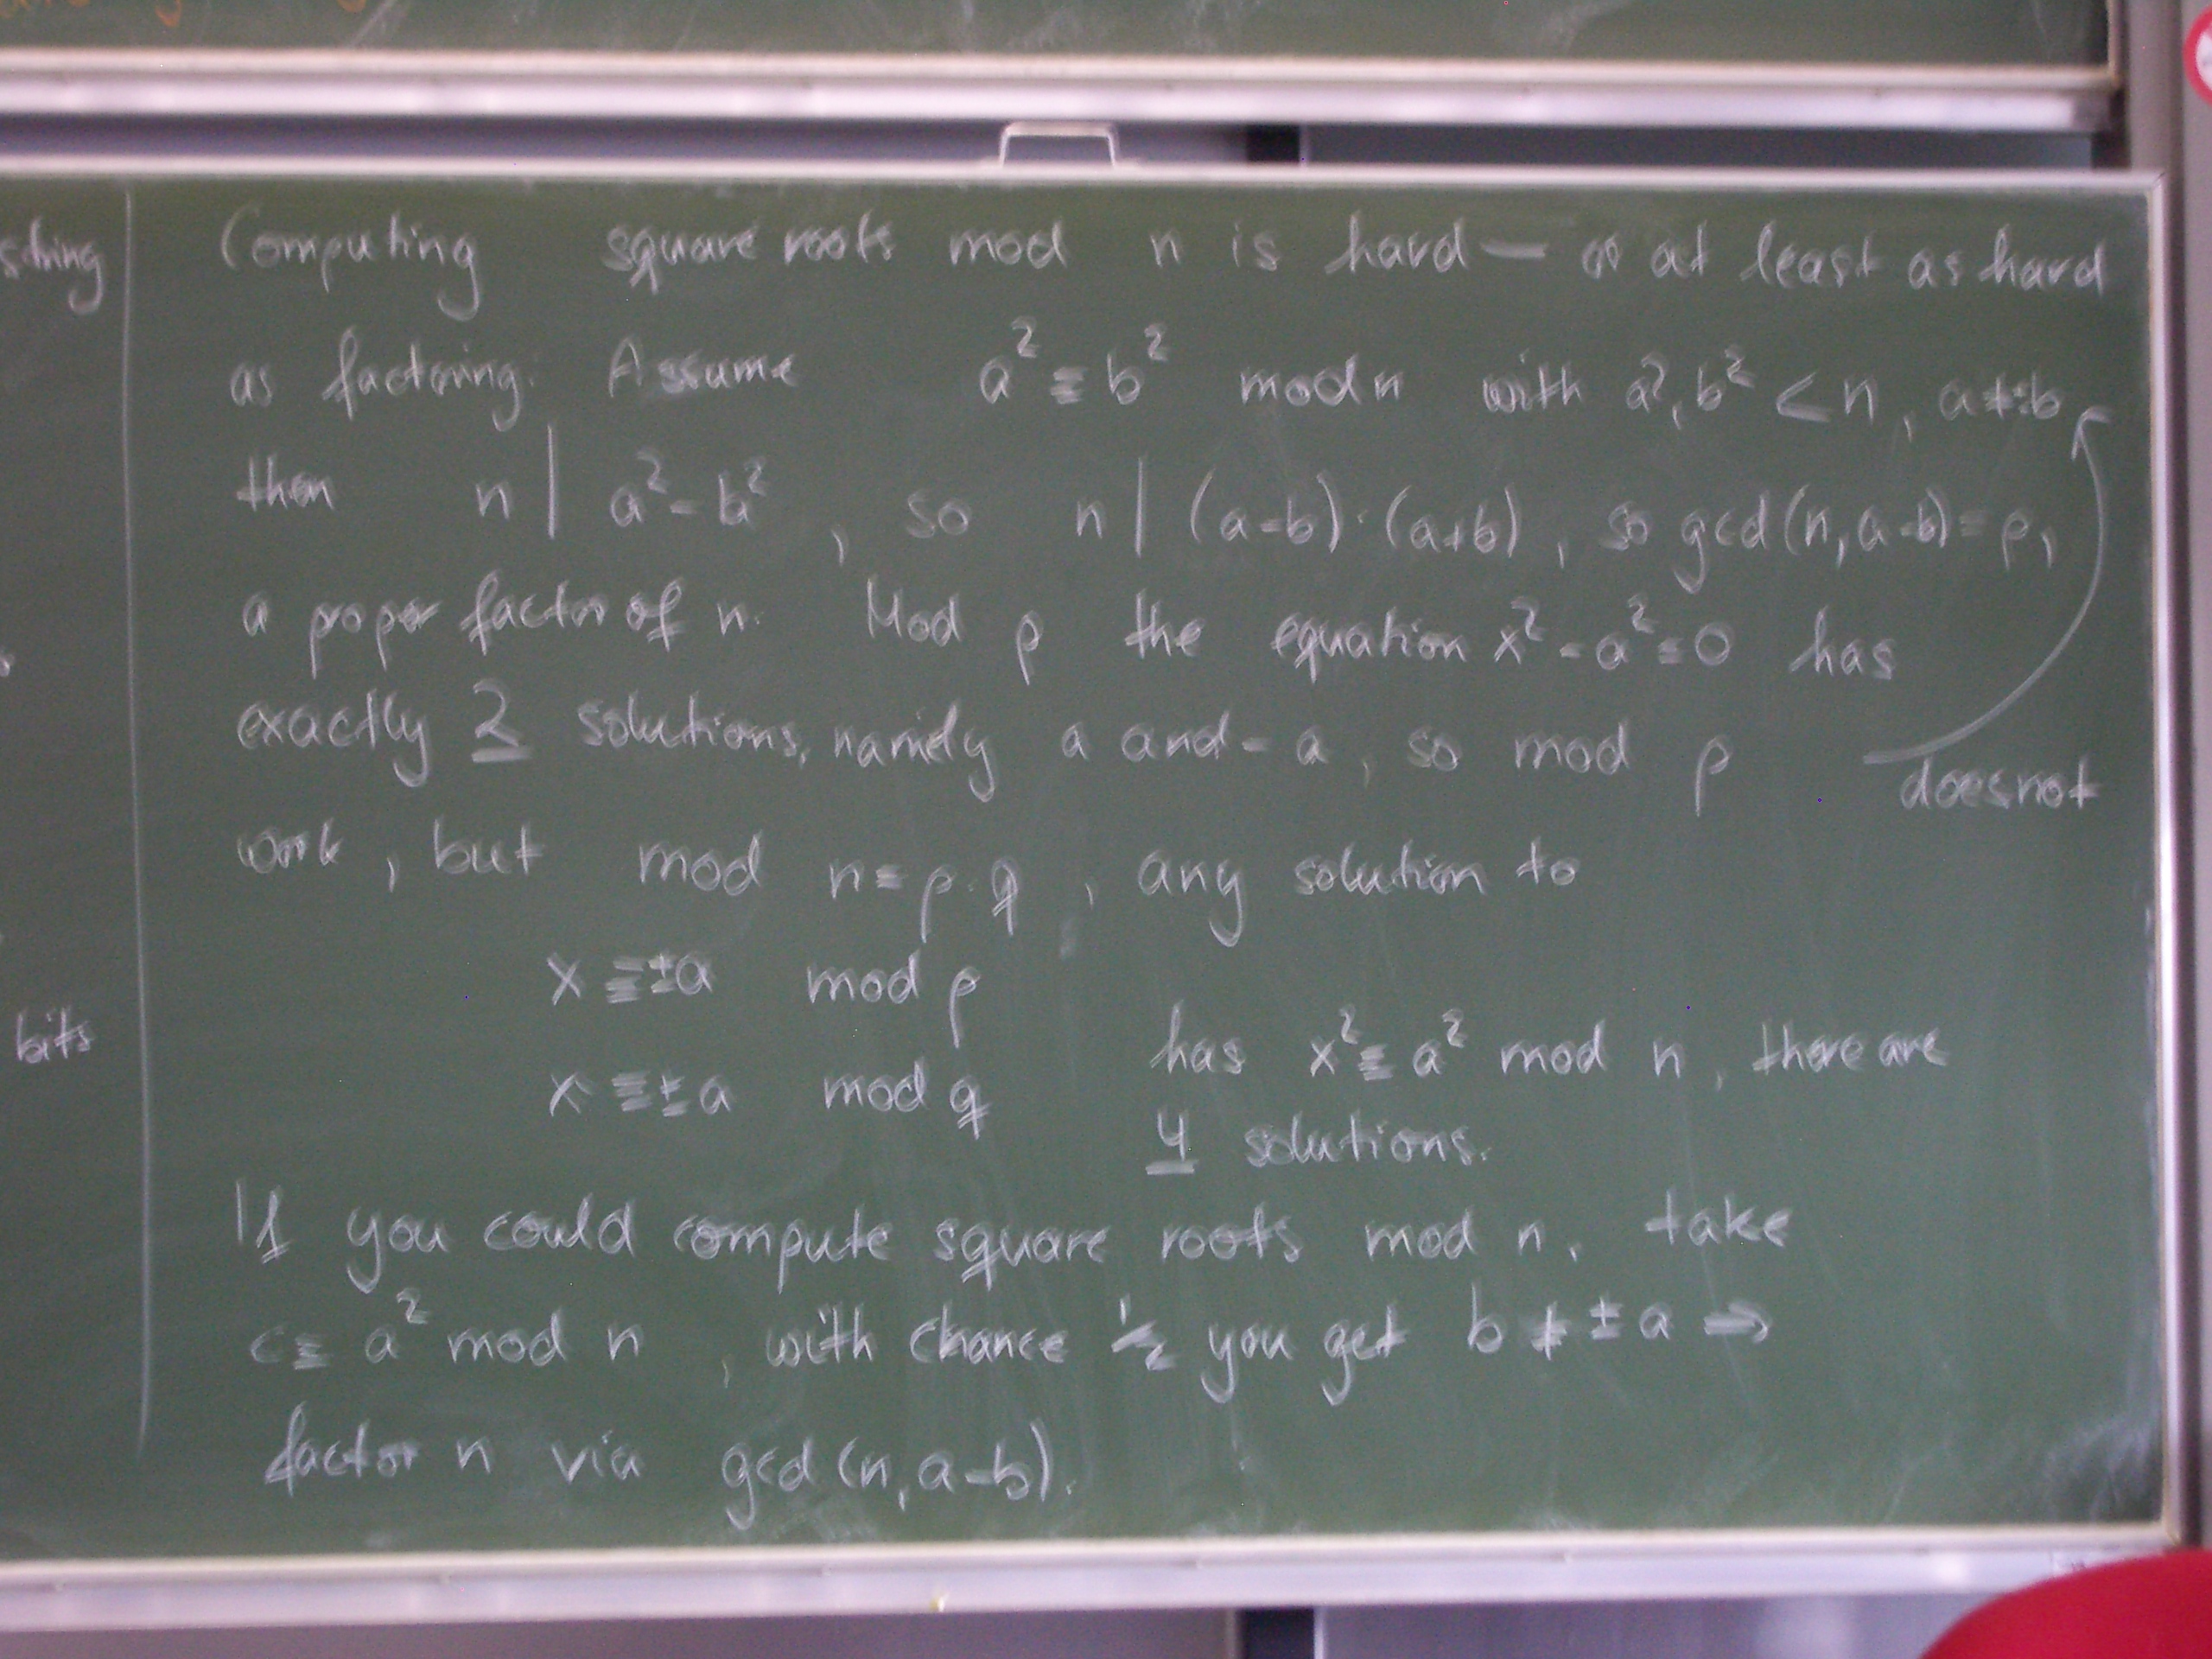 sching
bits
Computing square roots mod n is hard — or at least as hard
as factoring. Assume a² ≡ b² mod n with a², b² < n, a ≠ ±b
then n | a² - b² , so n | (a-b)·(a+b), so gcd(n, a-b) = p,
a proper factor of n. Mod p the equation x² - a² = 0 has
exactly 2 solutions, namely a and -a, so mod p does not
work, but mod n = p·q , any solution to
x ≡ ±a mod p
x ≡ ±a mod q
has x² ≡ a² mod n, there are
4 solutions.
If you could compute square roots mod n, take
c ≡ a² mod n , with chance 1/2 you get b ≢ ±a ⇒
factor n via gcd(n, a-b).